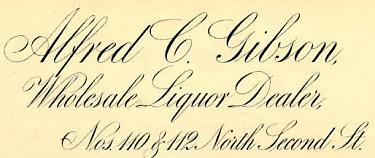 Alfred C. Gibson,
Wholesale Liquor Dealer,
Nos. 110 & 112 North Second St.